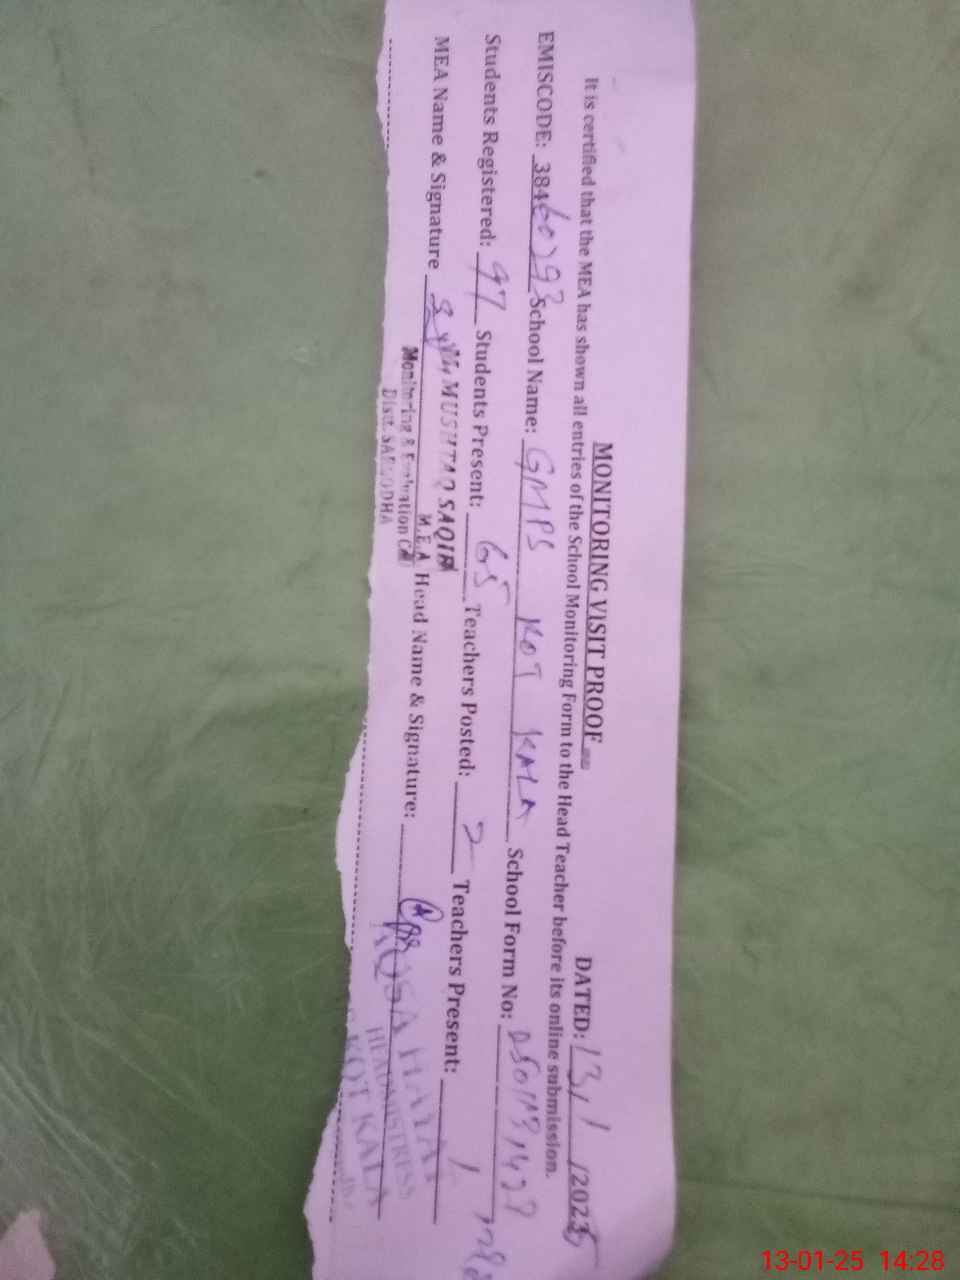 MONITORING VISIT PROOF
DATED: 13/1/2025
It is certified that the MEA has shown all entries of the School Monitoring Form to the Head Teacher before its online submission.
EMISCODE: 38460293 School Name: GMPS KOT KALA School Form No:
Students Registered: 97 Students Present: 65 Teachers Posted: 2 Teachers Present: 1
MEA Name & Signature MUSHTAQ SAQIB Head Name & Signature:
M.E.A
Monitoring & Evaluation
Distt. SARGODHA
AQSA HAYAT
HEADMISTRESS
KOT KALA
13-01-25 14:28